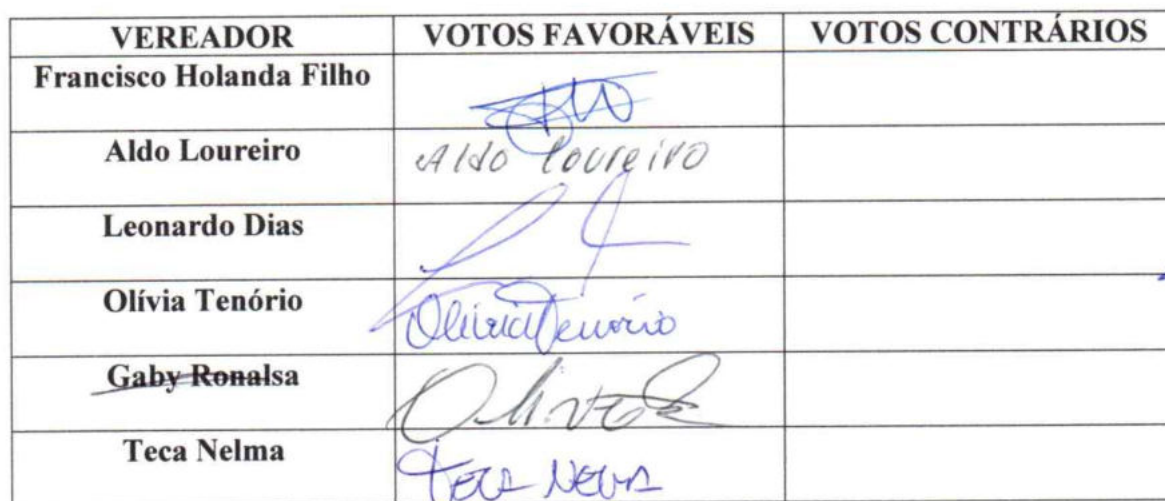 VEREADOR VOTOS FAVORÁVEIS VOTOS CONTRÁRIOS
Francisco Holanda Filho
Aldo Loureiro Aldo Loureiro
Leonardo Dias
Olívia Tenório Olívia Tenório
Gaby Ronalsa
Teca Nelma Teca Nelma